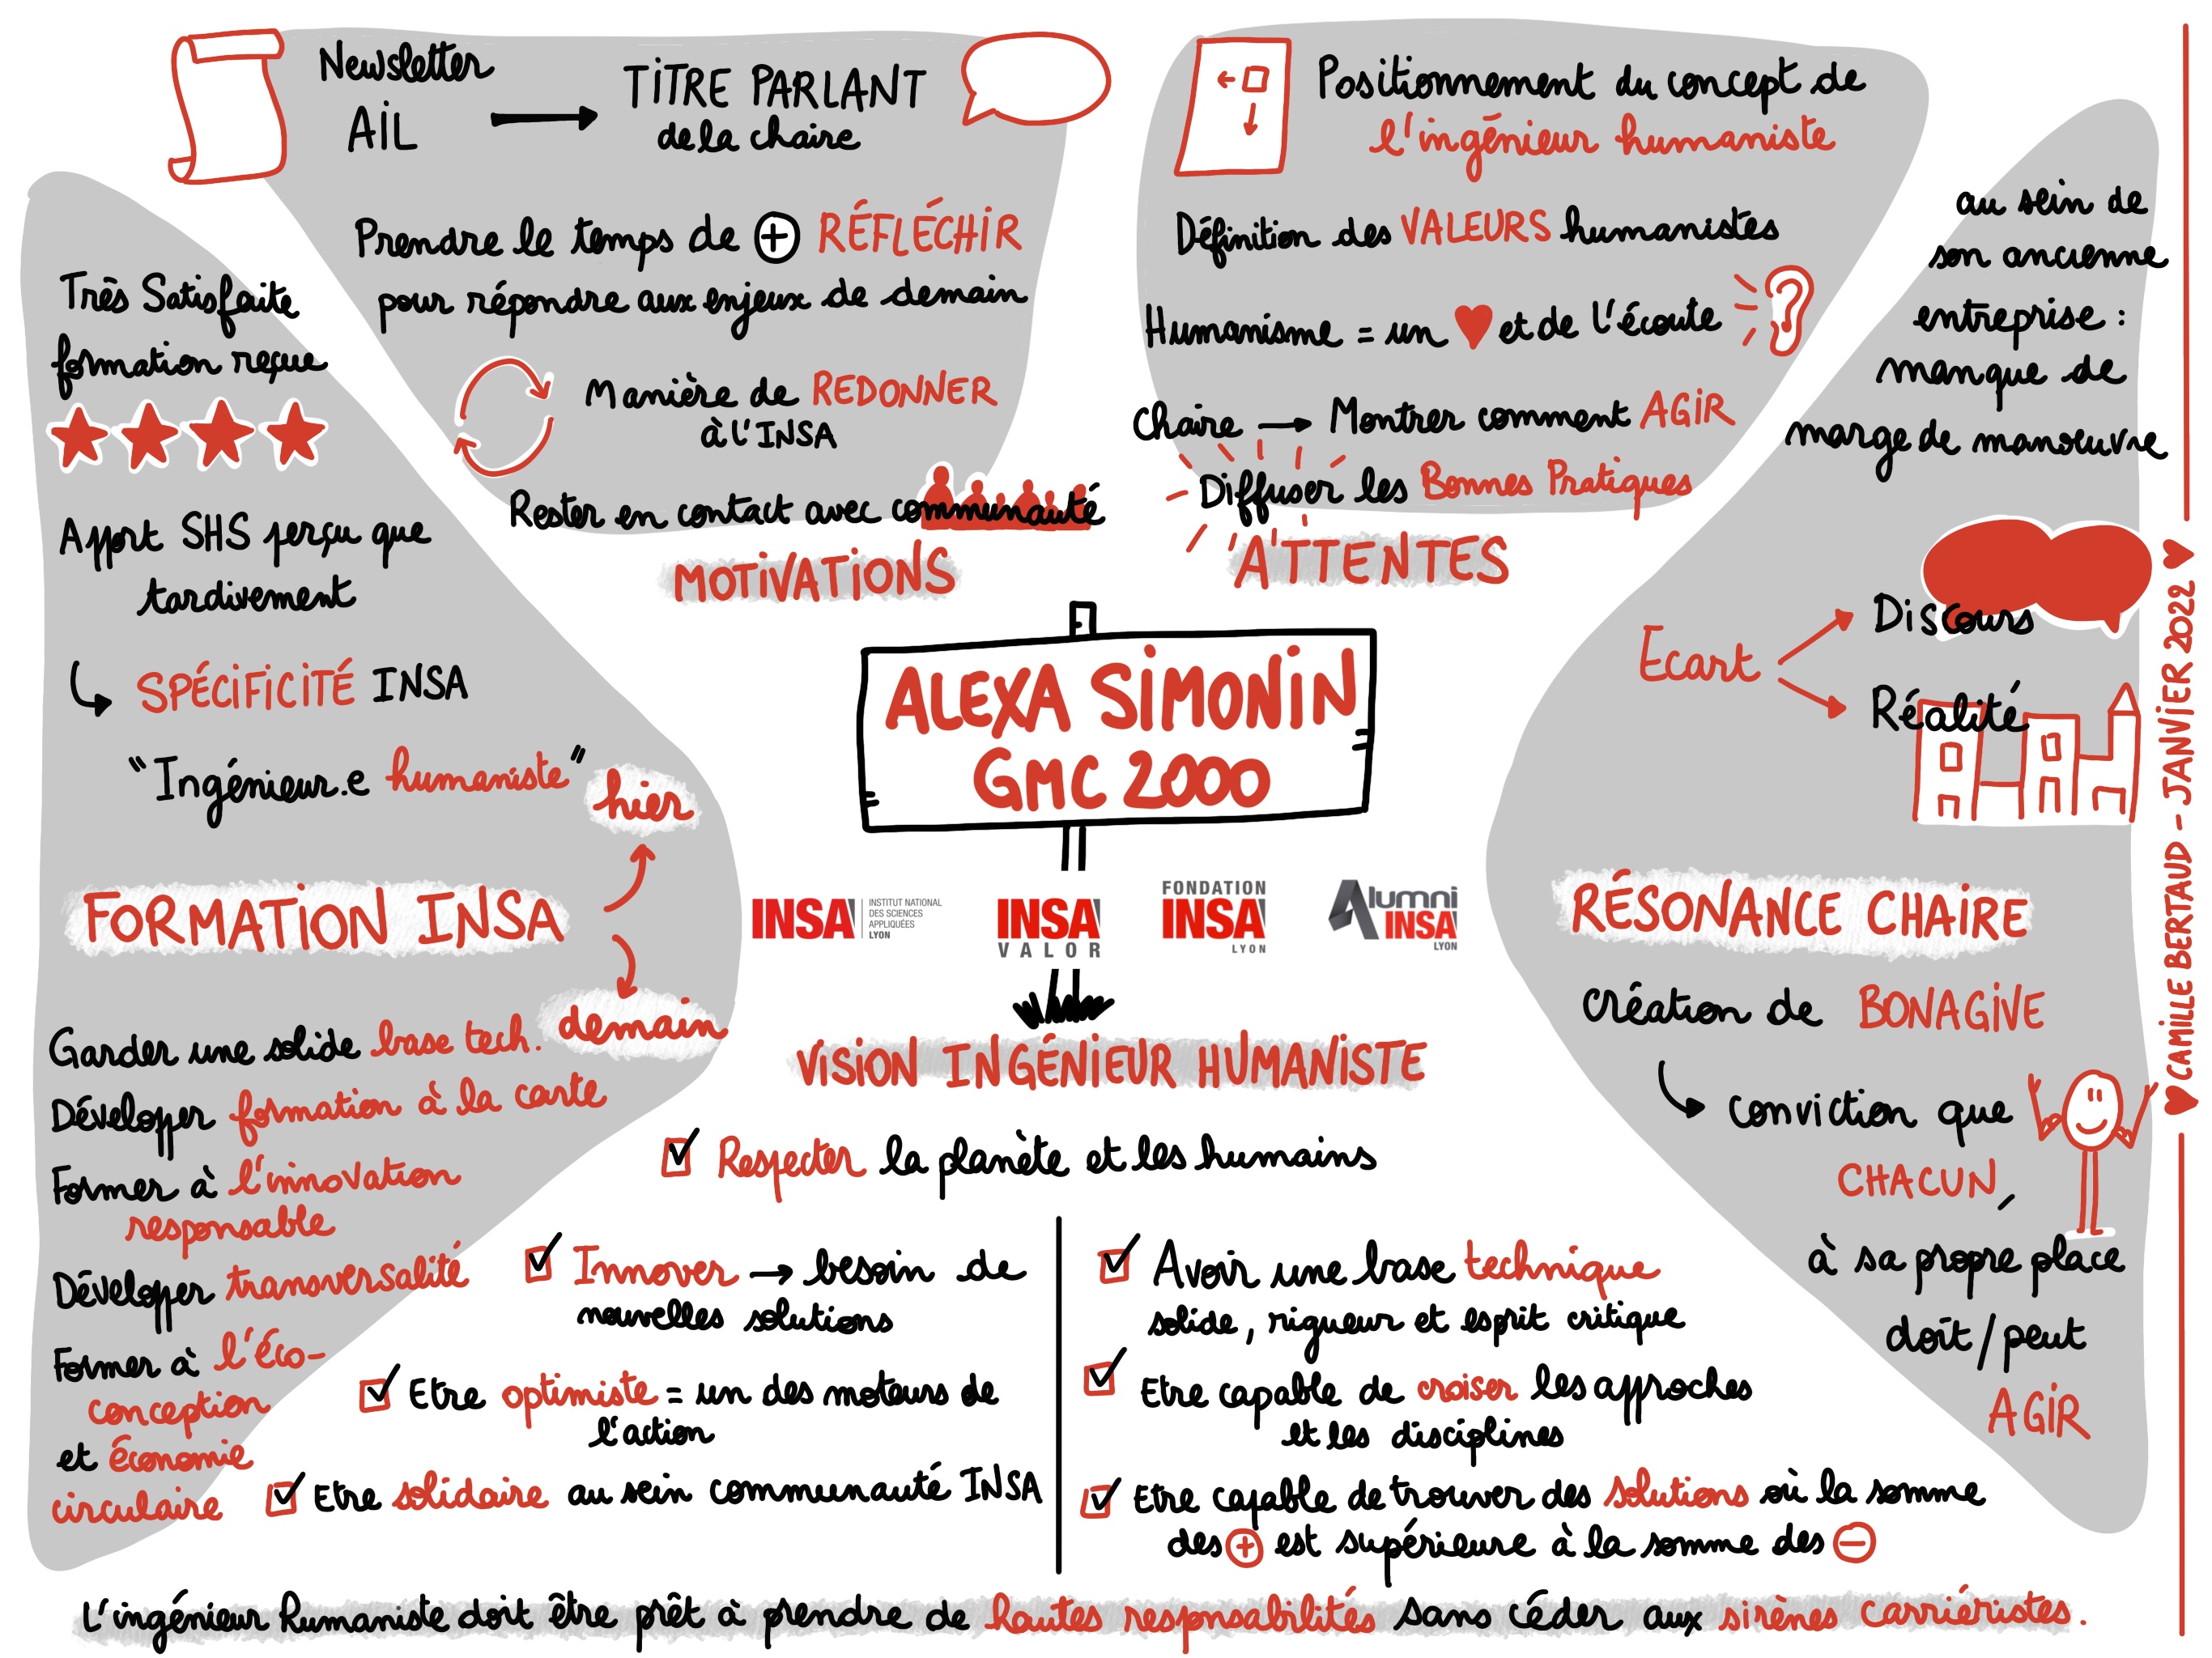 Newsletter
AIL
TITRE PARLANT
de la chaire
Prendre le temps de + RÉFLÉCHIR
pour répondre aux enjeux de demain
Manière de REDONNER
à l'INSA
Rester en contact avec communauté
MOTIVATIONS
Positionnement du concept de
l'ingénieur humaniste
Définition des VALEURS humanistes
Humanisme = un ♥ et de l'écoute
Chaire → Montrer comment AGIR
Diffuser les Bonnes Pratiques
ATTENTES
Très Satisfaite
formation reçue
Apport SHS perçu que
tardivement
SPÉCIFICITÉ INSA
"Ingénieur.e humaniste"
hier
FORMATION INSA
demain
Garder une solide base tech.
Développer formation à la carte
Former à l'innovation
responsable
Développer transversalité
Former à l'éco-
conception
et économie
circulaire
ALEXA SIMONIN
GMC 2000
INSA
INSTITUT NATIONAL
DES SCIENCES
APPLIQUÉES
LYON
INSA
VALOR
FONDATION
INSA
LYON
Alumni
INSA
LYON
VISION INGÉNIEUR HUMANISTE
Respecter la planète et les humains
Innover → besoin de
nouvelles solutions
Etre optimiste = un des moteurs de
l'action
Etre solidaire au sein communauté INSA
Avoir une base technique
solide, rigueur et esprit critique
Etre capable de croiser les approches
et les disciplines
Etre capable de trouver des solutions où la somme
des + est supérieure à la somme des -
au sein de
son ancienne
entreprise :
manque de
marge de manoeuvre
Ecart
Discours
Réalité
RÉSONANCE CHAIRE
Création de BONAGIVE
conviction que
CHACUN,
à sa propre place
doit/peut
AGIR
L'ingénieur humaniste doit être prêt à prendre de hautes responsabilités sans céder aux sirènes carriéristes.
♥ CAMILLE BERTAUD - JANVIER 2022 ♥